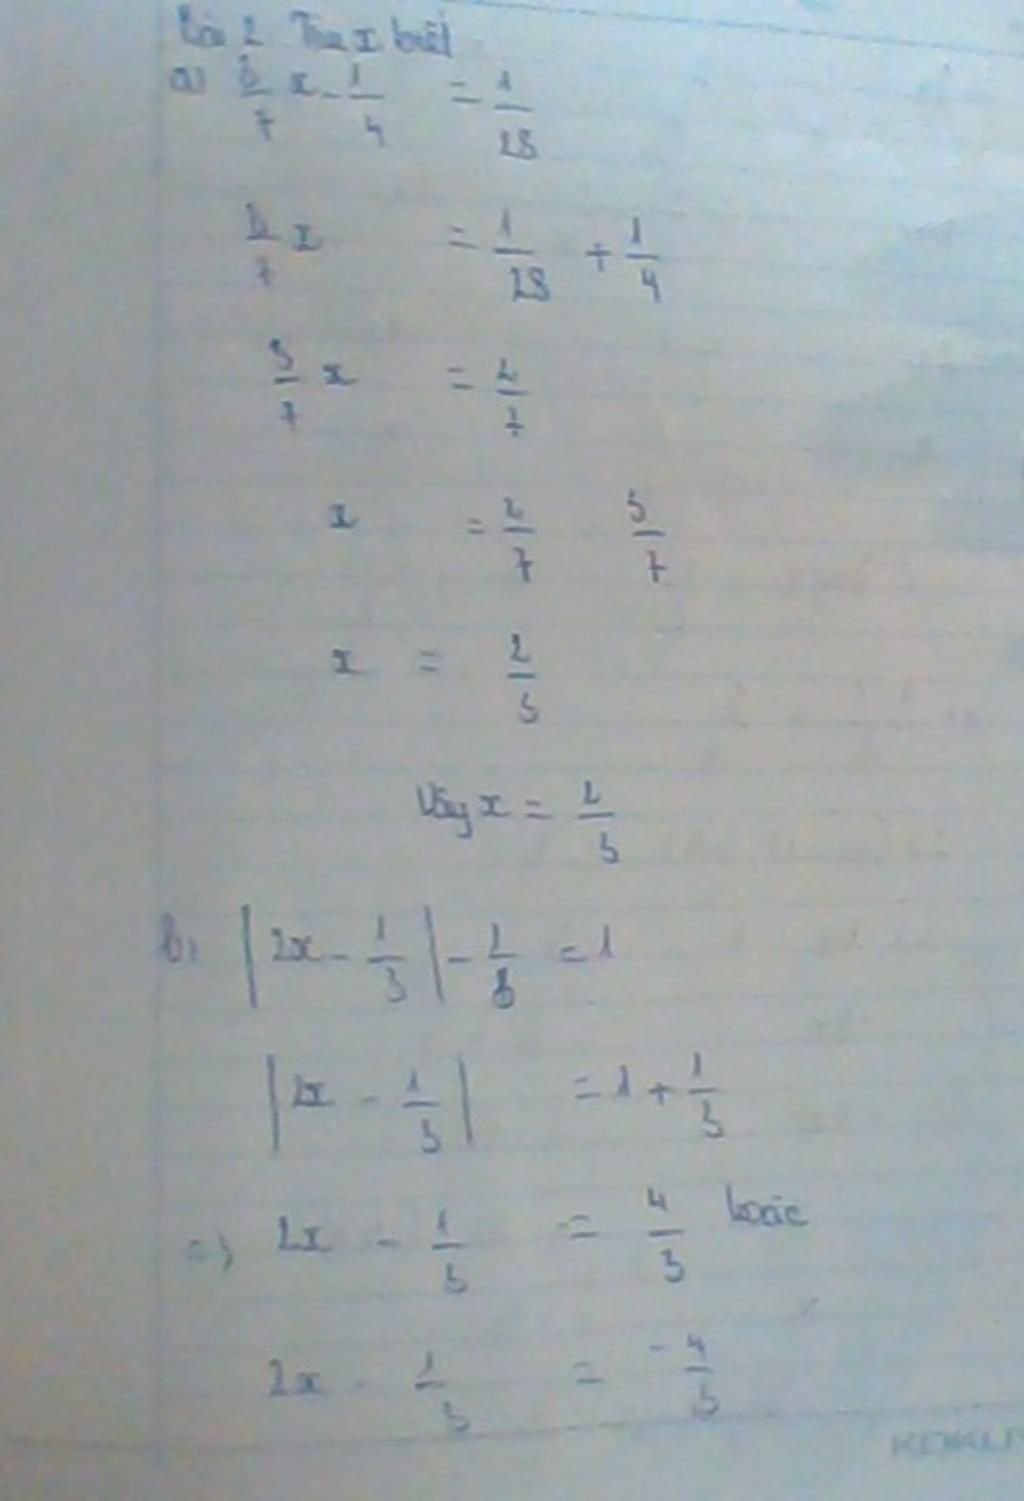 Bài 2 Tìm x biết
a) 5/7 x - 1/4 = 1/28
5/7 x = 1/28 + 1/4
5/7 x = 2/7
x = 2/7 5/7
x = 2/5
Vậy x = 2/5
b, |2x - 1/3| - 1/3 = 1
|2x - 1/3| = 1 + 1/3
=> 2x - 1/3 = 4/3 hoặc
2x - 1/3 = -4/3